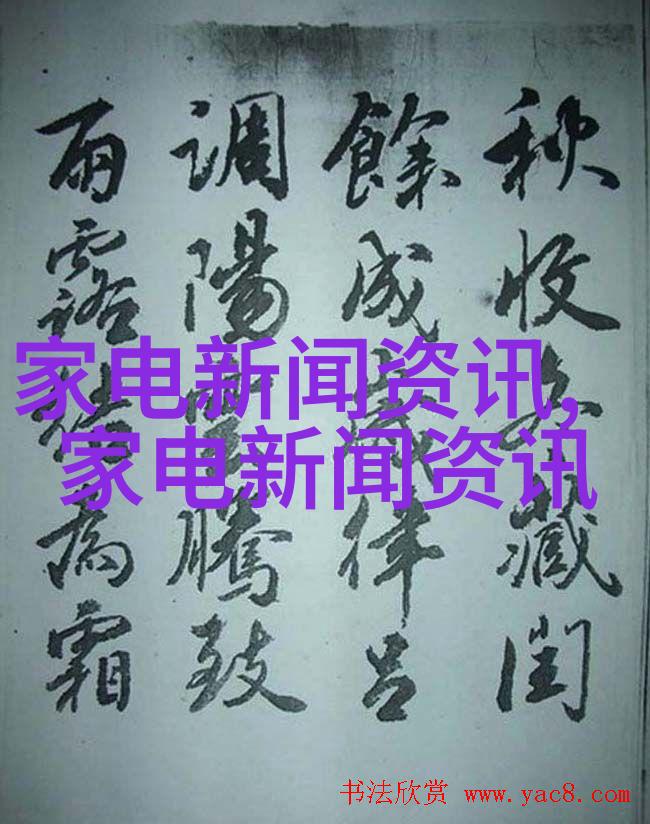 秋收冬藏閏
餘成歲律呂
調陽雲騰致
雨露結為霜
家电新闻资讯,
家电新闻资讯
书法欣赏 www.yac8.com